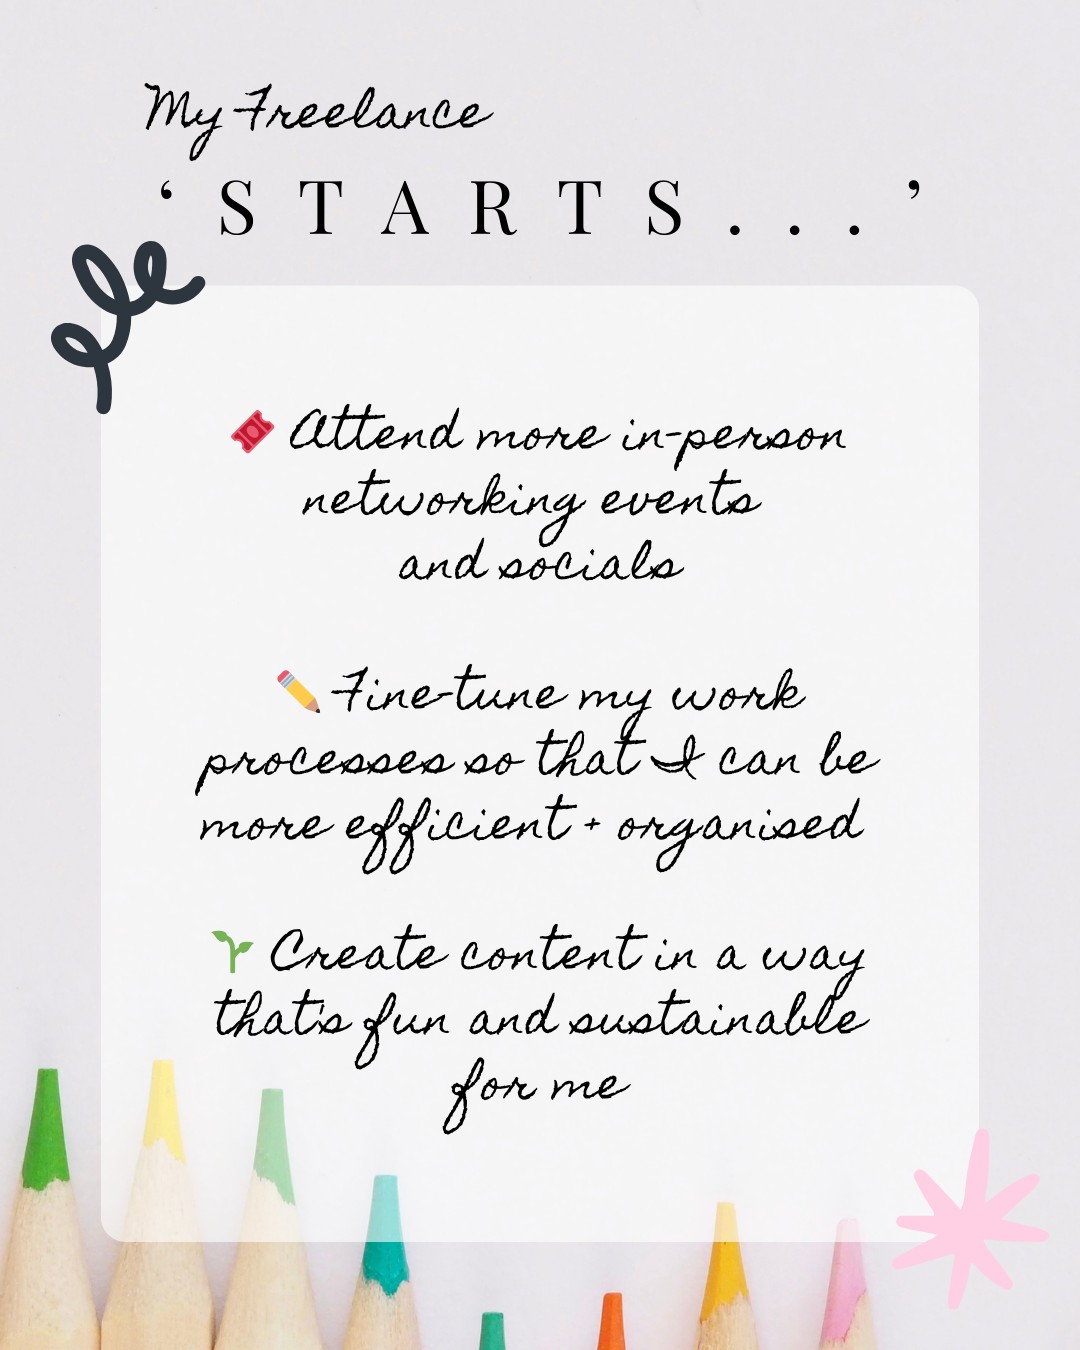 My Freelance
‘STARTS...’
🎟️ Attend more in-person
networking events
and socials
✏️ Fine-tune my work
processes so that I can be
more efficient + organised
🌱 Create content in a way
that's fun and sustainable
for me